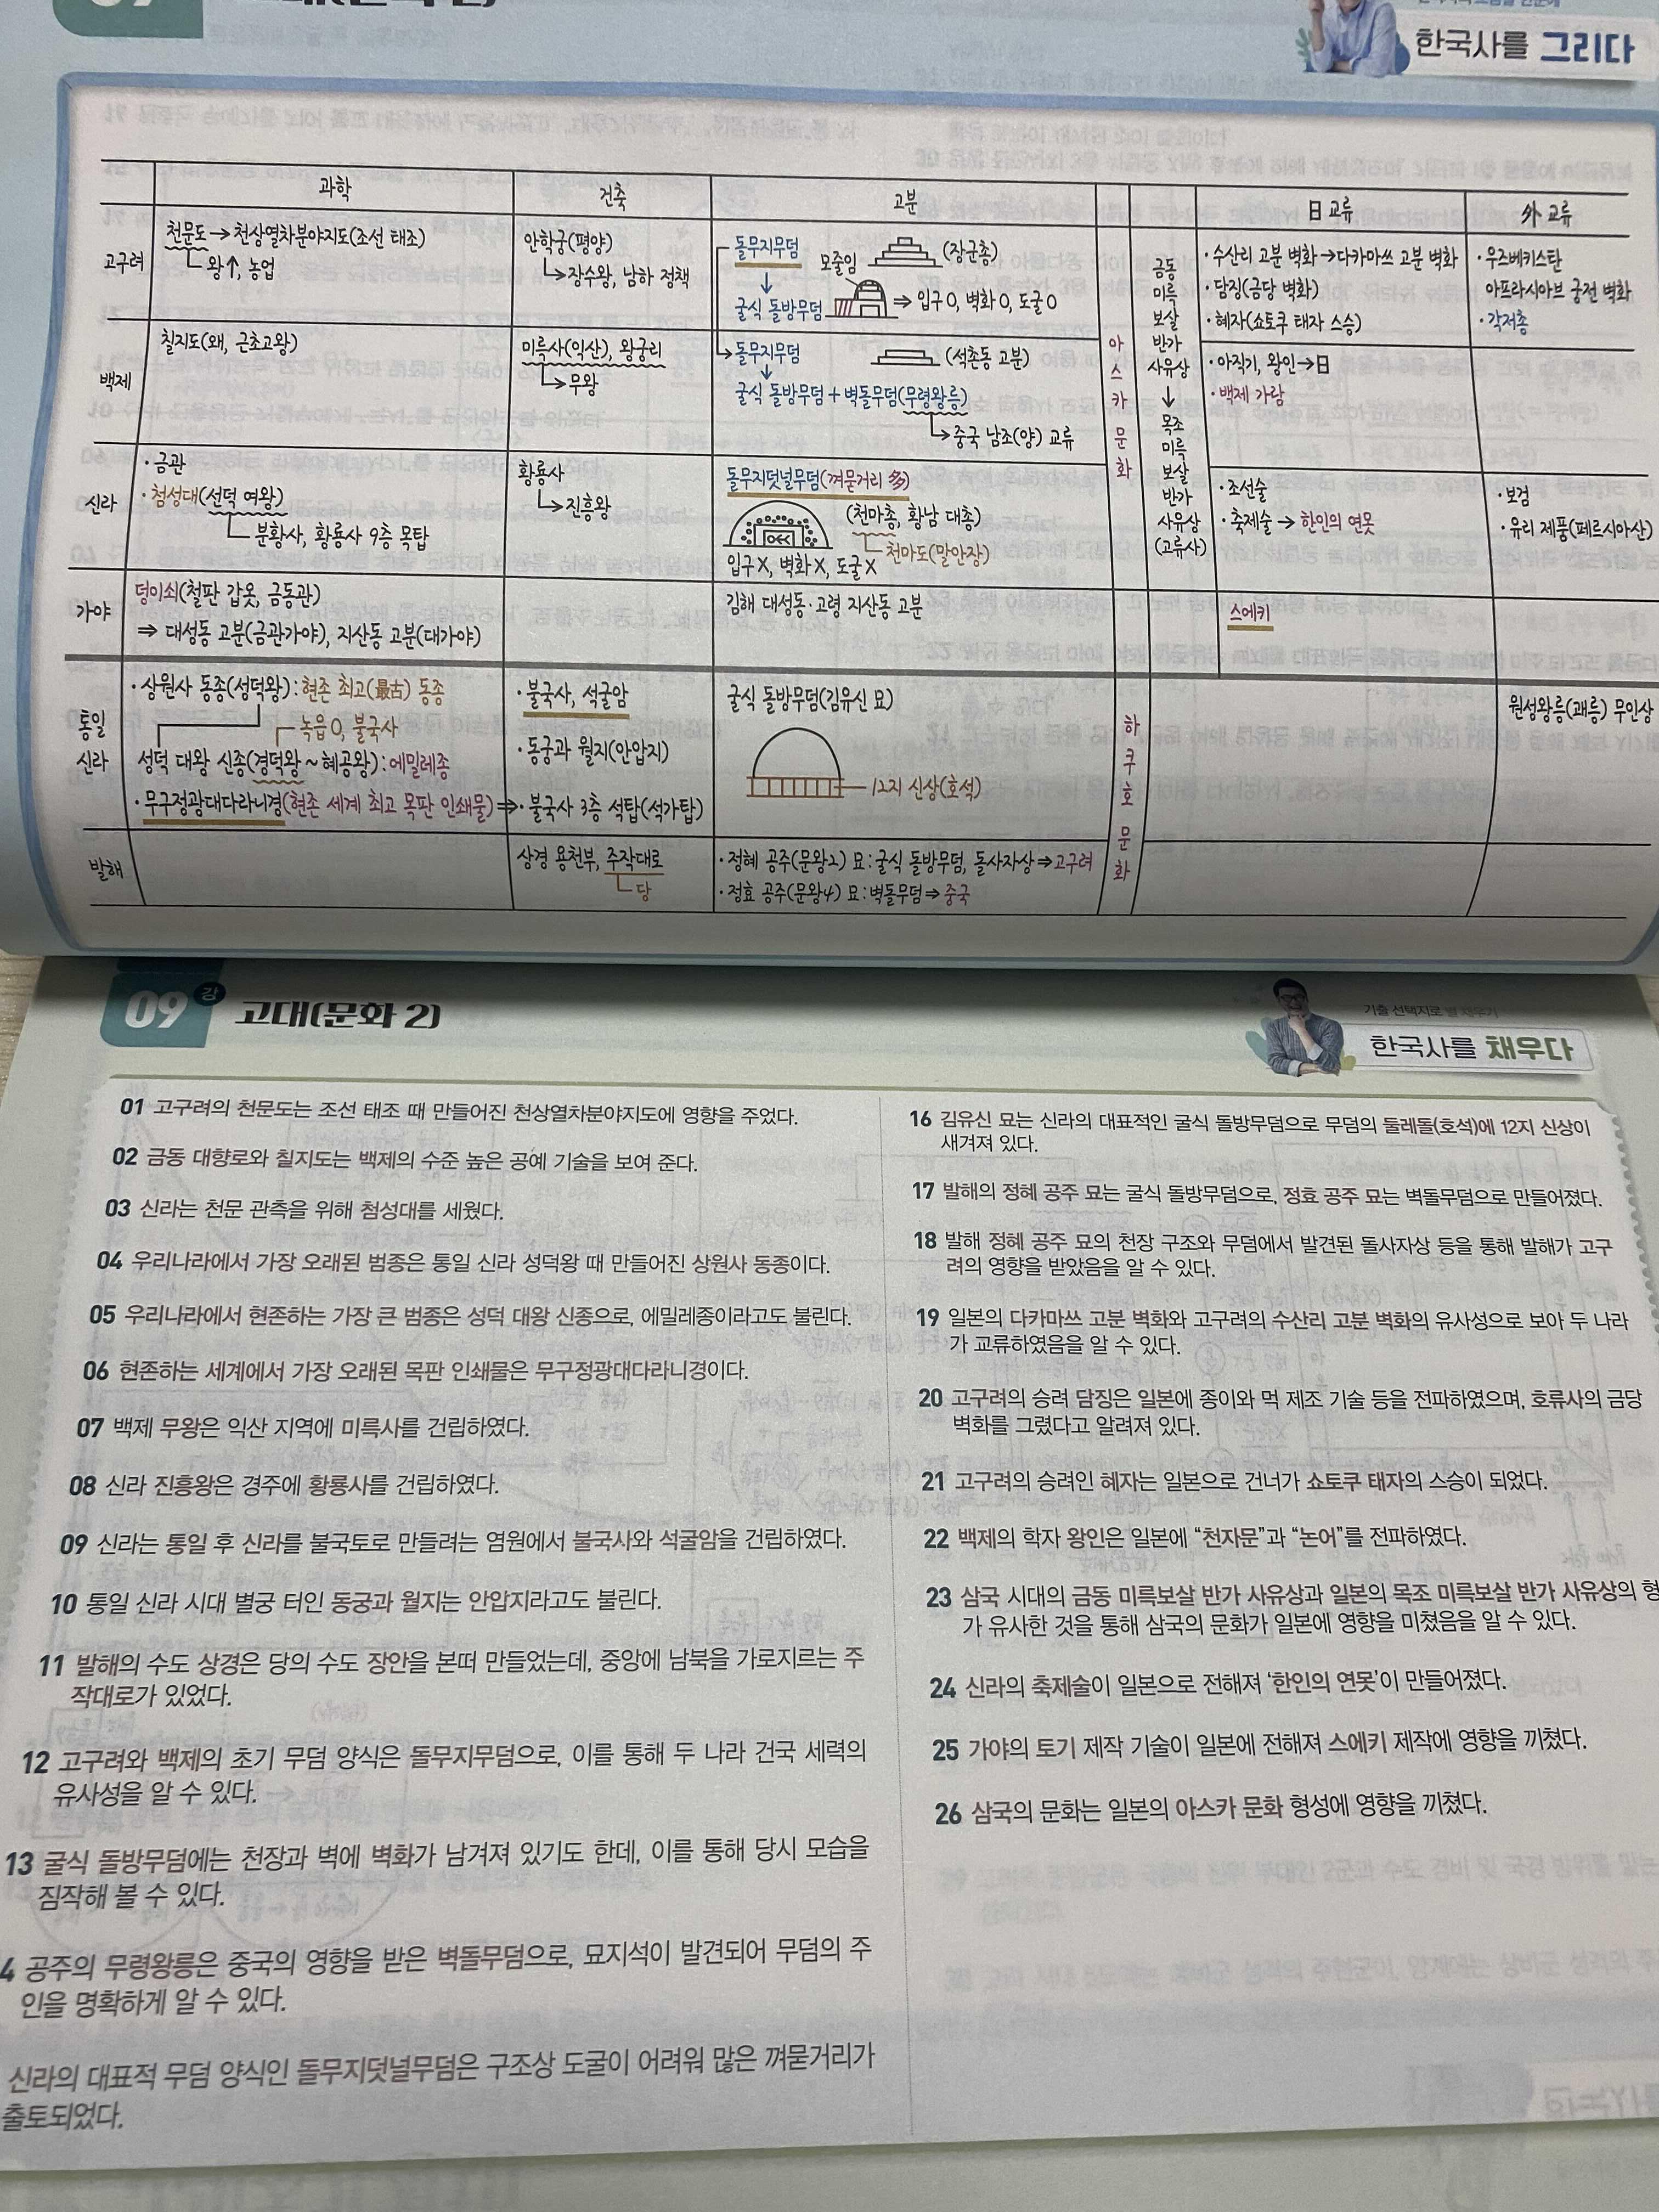 한국사를 그리다
과학 건축 고분 日 교류 外 교류
고구려
천문도→천상열차분야지도(조선 태조)
왕↑, 농업
안학궁(평양)
장수왕, 남하 정책
돌무지무덤 (장군총)
모줄임
굴식 돌방무덤 ⇒ 입구O, 벽화O, 도굴O
· 수산리 고분 벽화→다카마쓰 고분 벽화
· 담징(금당 벽화)
· 혜자(쇼토쿠 태자 스승)
· 우즈베키스탄
아프라시아브 궁전 벽화
· 각저총
백제
칠지도(왜, 근초고왕)
미륵사(익산), 왕궁리
무왕
돌무지무덤 (석촌동 고분)
굴식 돌방무덤+벽돌무덤(무령왕릉)
중국 남조(양) 교류
· 아직기, 왕인→日
· 백제 가람
신라
· 금관
· 첨성대(선덕 여왕)
분황사, 황룡사 9층 목탑
황룡사
진흥왕
돌무지덧널무덤(껴묻거리 多)
(천마총, 황남 대총)
천마도(말안장)
입구X, 벽화X, 도굴X
· 조선술
· 축제술→한인의 연못
· 보검
· 유리 제품(페르시아산)
가야
덩이쇠(철판 갑옷, 금동관)
⇒ 대성동 고분(금관가야), 지산동 고분(대가야)
김해 대성동·고령 지산동 고분
스에키
아
스
카
문
화
금동
미륵
보살
반가
사유상
↓
목조
미륵
보살
반가
사유상
(고류사)
통일
신라
· 상원사 동종(성덕왕):현존 최고(最古) 동종
녹읍O, 불국사
성덕 대왕 신종(경덕왕~혜공왕):에밀레종
· 무구정광대다라니경(현존 세계 최고 목판 인쇄물)⇒
· 불국사, 석굴암
· 동궁과 월지(안압지)
· 불국사 3층 석탑(석가탑)
굴식 돌방무덤(김유신 묘)
12지 신상(호석)
원성왕릉(괘릉) 무인상
발해
상경 용천부, 주작대로
당
· 정혜 공주(문왕2) 묘:굴식 돌방무덤, 돌사자상⇒고구려
· 정효 공주(문왕4) 묘:벽돌무덤⇒중국
하
쿠
호
문
화
09강 고대(문화 2)
기출 선택지로 별 채우기
한국사를 채우다
01 고구려의 천문도는 조선 태조 때 만들어진 천상열차분야지도에 영향을 주었다.
02 금동 대향로와 칠지도는 백제의 수준 높은 공예 기술을 보여 준다.
03 신라는 천문 관측을 위해 첨성대를 세웠다.
04 우리나라에서 가장 오래된 범종은 통일 신라 성덕왕 때 만들어진 상원사 동종이다.
05 우리나라에서 현존하는 가장 큰 범종은 성덕 대왕 신종으로, 에밀레종이라고도 불린다.
06 현존하는 세계에서 가장 오래된 목판 인쇄물은 무구정광대다라니경이다.
07 백제 무왕은 익산 지역에 미륵사를 건립하였다.
08 신라 진흥왕은 경주에 황룡사를 건립하였다.
09 신라는 통일 후 신라를 불국토로 만들려는 염원에서 불국사와 석굴암을 건립하였다.
10 통일 신라 시대 별궁 터인 동궁과 월지는 안압지라고도 불린다.
11 발해의 수도 상경은 당의 수도 장안을 본떠 만들었는데, 중앙에 남북을 가로지르는 주
작대로가 있었다.
12 고구려와 백제의 초기 무덤 양식은 돌무지무덤으로, 이를 통해 두 나라 건국 세력의
유사성을 알 수 있다.
13 굴식 돌방무덤에는 천장과 벽에 벽화가 남겨져 있기도 한데, 이를 통해 당시 모습을
짐작해 볼 수 있다.
4 공주의 무령왕릉은 중국의 영향을 받은 벽돌무덤으로, 묘지석이 발견되어 무덤의 주
인을 명확하게 알 수 있다.
신라의 대표적 무덤 양식인 돌무지덧널무덤은 구조상 도굴이 어려워 많은 껴묻거리가
출토되었다.
16 김유신 묘는 신라의 대표적인 굴식 돌방무덤으로 무덤의 둘레돌(호석)에 12지 신상이
새겨져 있다.
17 발해의 정혜 공주 묘는 굴식 돌방무덤으로, 정효 공주 묘는 벽돌무덤으로 만들어졌다.
18 발해 정혜 공주 묘의 천장 구조와 무덤에서 발견된 돌사자상 등을 통해 발해가 고구
려의 영향을 받았음을 알 수 있다.
19 일본의 다카마쓰 고분 벽화와 고구려의 수산리 고분 벽화의 유사성으로 보아 두 나라
가 교류하였음을 알 수 있다.
20 고구려의 승려 담징은 일본에 종이와 먹 제조 기술 등을 전파하였으며, 호류사의 금당
벽화를 그렸다고 알려져 있다.
21 고구려의 승려인 혜자는 일본으로 건너가 쇼토쿠 태자의 스승이 되었다.
22 백제의 학자 왕인은 일본에 “천자문”과 “논어”를 전파하였다.
23 삼국 시대의 금동 미륵보살 반가 사유상과 일본의 목조 미륵보살 반가 사유상의 형
가 유사한 것을 통해 삼국의 문화가 일본에 영향을 미쳤음을 알 수 있다.
24 신라의 축제술이 일본으로 전해져 ‘한인의 연못’이 만들어졌다.
25 가야의 토기 제작 기술이 일본에 전해져 스에키 제작에 영향을 끼쳤다.
26 삼국의 문화는 일본의 아스카 문화 형성에 영향을 끼쳤다.